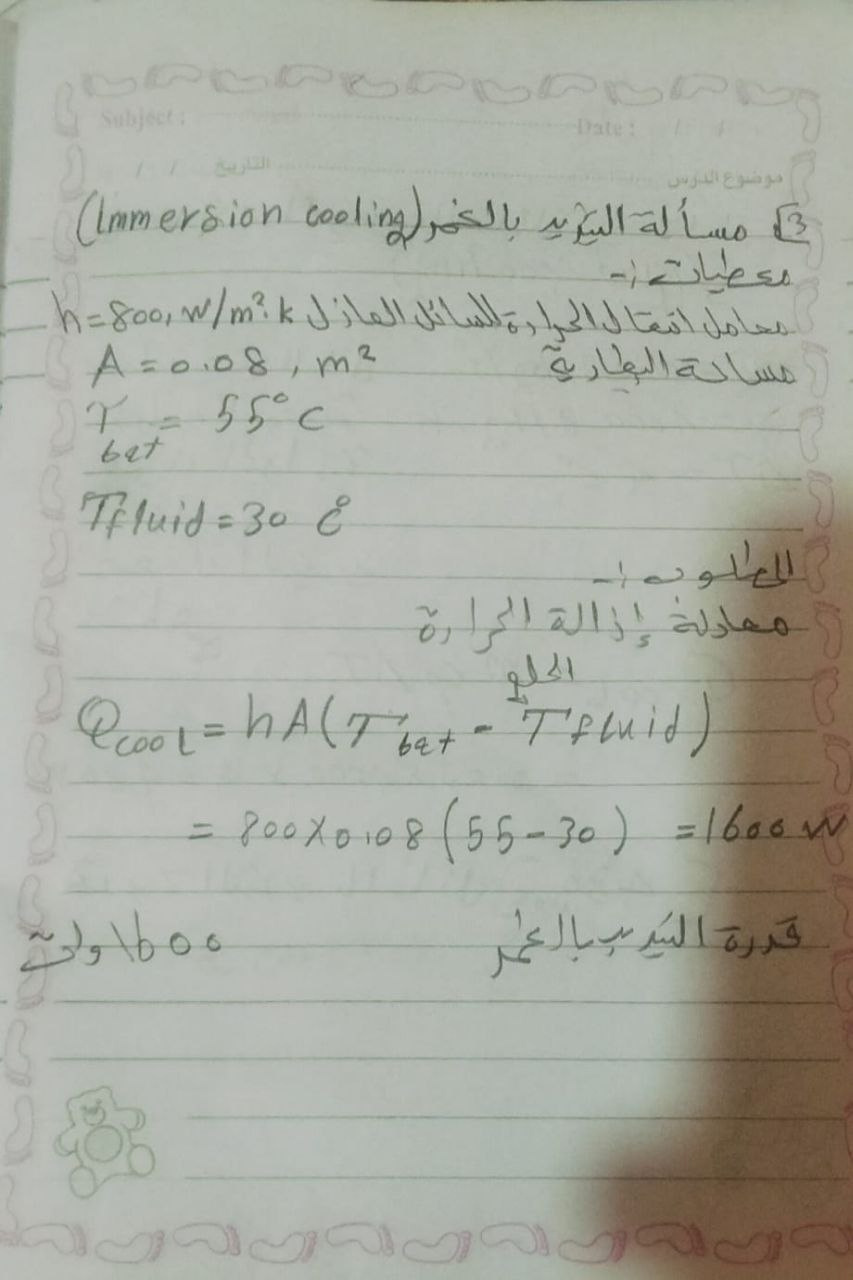 Subject :
Date : / /
موضوع الدرس
التاريخ / /
3 مسألة التبريد بالغمر (Immersion cooling)
معطيات :-
معامل انتقال الحرارة للسائل العازل h=800, W/m².k
مساحة البطارية A = 0.08 , m²
T bat = 55°C
Tfluid = 30 C°
المطلوب :-
معادلة إزالة الحرارة
الحلو
Qcool = hA(Tbat - Tfluid)
= 800×0.08 (55-30) =1600 W
قدرة التبريد بالغمر 1600 وات